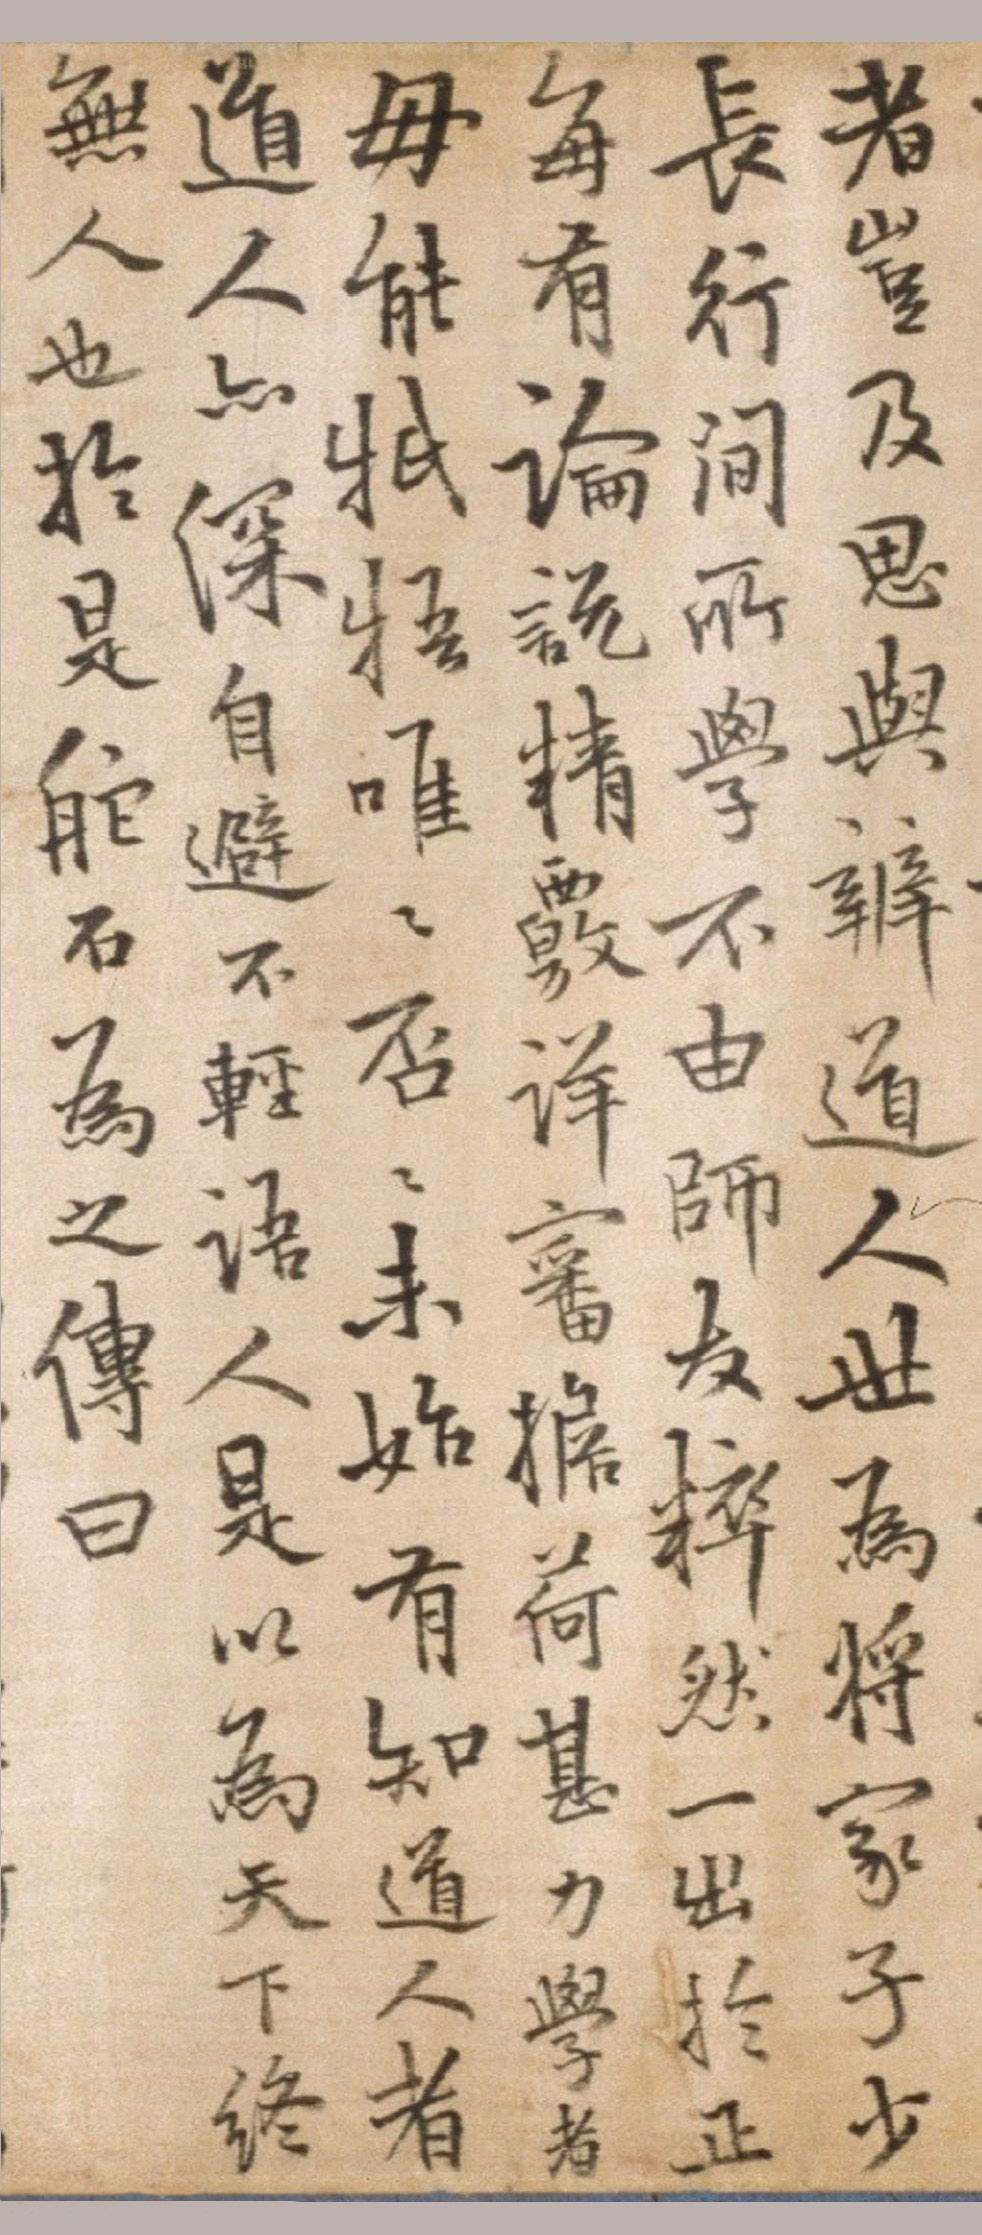 者豈及思與辨道人世為將家子少
長行間所學不由師友粹然一出於正
每有論說精覈詳審擔荷甚力學者
毋能牴牾唯〻否〻未始有知道人者
道人亦深自避不輕語人是以為天下終
無人也於是舵石為之傳曰